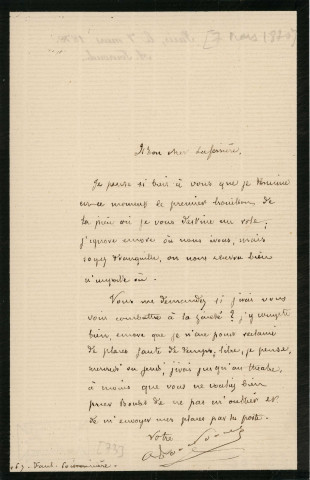 Mon cher Laferrière,
Je pense si bien à vous que je termine
en ce moment le premier brouillon de
la pièce où je vous destine un rôle,
j'ignore encore où nous irons, mais
soyez tranquille, on nous recevra bien
n'importe où.
Vous me demandez si j'irai vous
voir combattre à la Gaîté ? j'y compte
bien, encore que je n'aie point réclamé
de places faute de temps, libre, je pense,
mercredi ou jeudi, j'irai jusqu'au théâtre,
à moins que vous ne vouliez bien
prier de ne pas m'oublier et
de m'envoyer mes places par la poste.
Votre